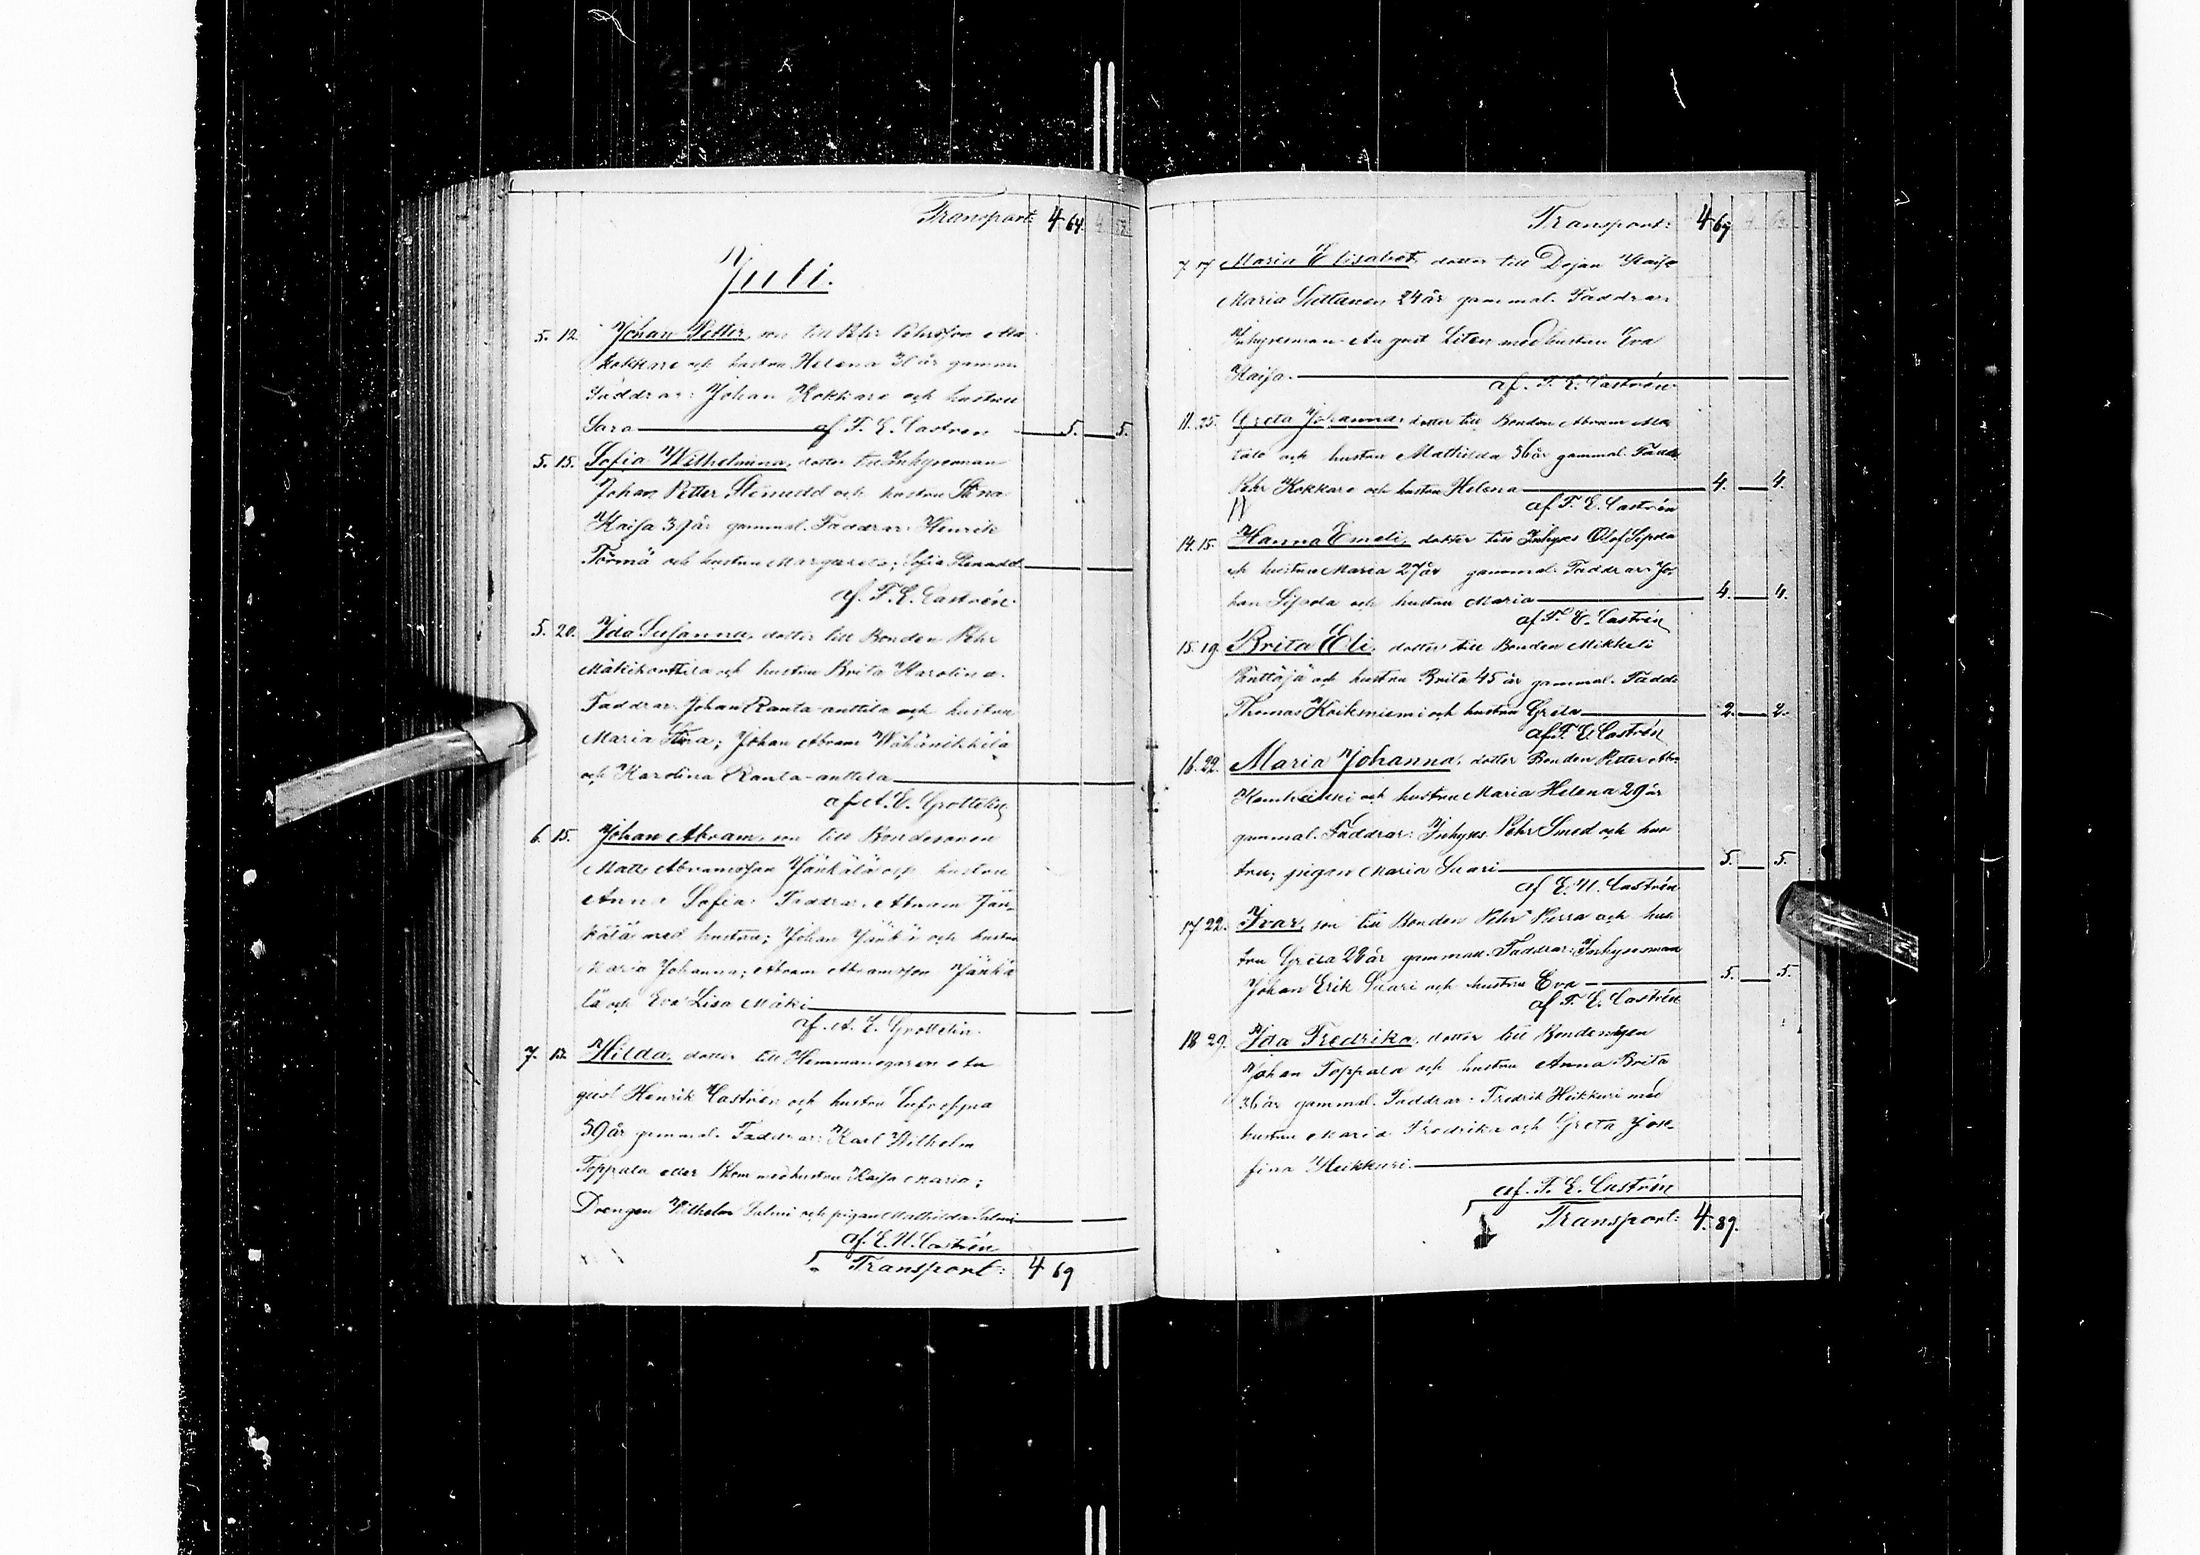 Transport: 4 64.
Juli.
5. 12. Johan Petter, son till Pehr Pehrsson
Kokkare och hustru Helena 31 år
Faddrar: Johan Kokkare och hustru
Sara af F. E. Castrén 5. 5.
5. 15. Sofia Wilhelmina, dotter till Inhysesman
Johan Petter Stenudd och hustru Stina
Kaisa 39 år gammal. Faddrar: Henrik
Törmä och hustru Margareta; Sofia Stenudd
af. F. E. Castrén.
5. 20. Ida Susanna, dotter till Bonden Pehr
och hustru Brita Karolina.
Faddrar: Johan Ranta-anttila och hustru
Maria Stina; Johan Abram Wähänikkilä
och Karolina Ranta-anttila
af A. E. Grottelin
6. 15. Johan Abram, son till Bondesonen
Matts Abramsson Jänkälä och hustru
Anna Sofia. Faddrar: Abram Jän-
kälä med hustru; Johan och hustru
Maria Johanna; Abram Abramsson Jänkä
lä och Eva Lisa Mäki
af. A. E. Grottelin.
7. 13. Hilda, dotter till Hemmansegaren Au
gust Henrik Castrén och hustru
39 år gammal. Faddrar: Karl Wilhelm
Toppala eller med hustru Kaisa Maria;
Drengen Wilhelm Salmi och pigan Mathilda Salmi
af. E. N. Castrén
Transport: 4 69
Transport: 4 69
7. 17. Maria Elisabet, dotter till Dejan Kaisa
Maria 24 år gammal. Faddrar:
Inhysesman August Liten med hustru Eva
Kaisa.
af. F. E. Castrén.
11. 25. Greta Johanna, dotter till Bonden Abram
och hustru Mathilda 36 år gammal. Fadd:
Pehr Kokkare och hustru Helena 4. 4.
af F. E. Castrén
14. 15. Hanna Emeli, dotter till Inhyses Olof Sipola
och hustru Maria 27 år gammal. Faddrar: Jo-
han Sipola och hustru Maria 4. 4.
af F. E. Castrén
15. 19. Brita Eli, dotter till Bonden Mikkeli
och hustru Brita 45 år gammal. Fadd:
Thomas Koikniemi och hustru Greta 2. 2.
af F. E. Castrén
16. 22. Maria Johanna, dotter Bonden Petter
och hustru Maria Helena 29 år
gammal. Faddrar: Inhyses Pehr Smed och hus
tru; pigan Maria Saari 5. 5.
af E. N. Castrén
17. 22. Ivar, son till Bonden Pehr och hus-
tru Greta 28 år gammal. Faddrar: Inhysesman
Johan Erik Saari och hustru Eva 5. 5.
af F. E. Castrén
18. 29. Ida Fredrika, dotter till
Johan Toppala och hustru Anna Brita
36 år gammal. Faddrar: Fredrik Heikkuri med
hustru Maria Fredrika och Greta Jose-
fina Heikkuri.
af. F. E. Castrén
Transport: 4. 89.